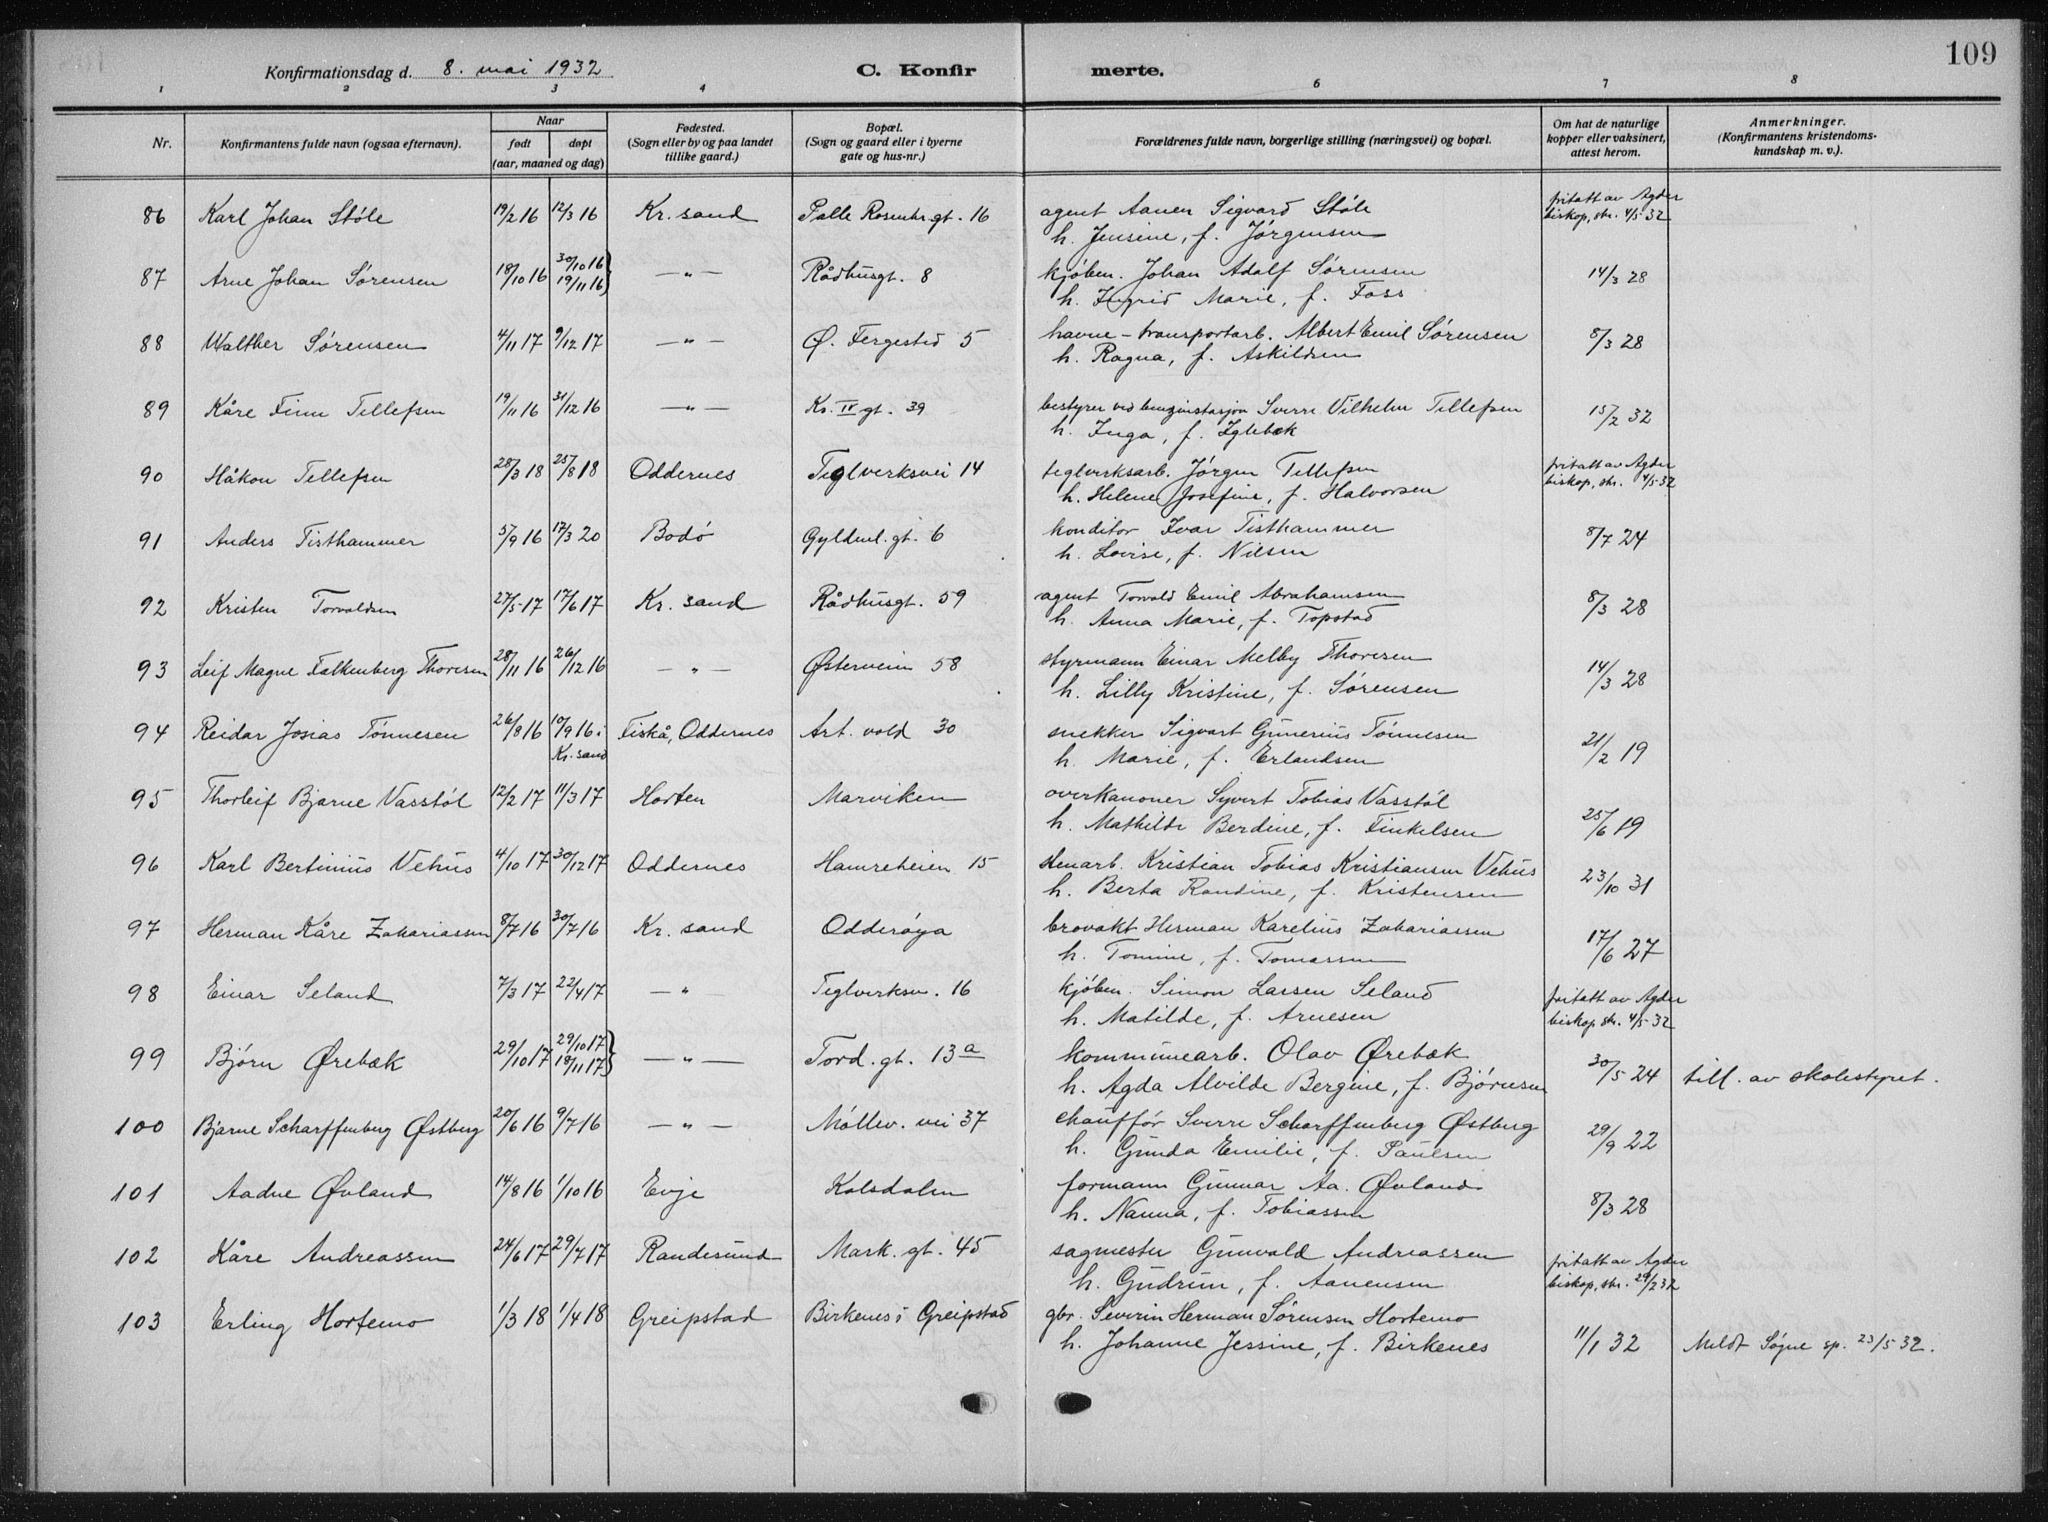 109
Konfirmationsdag d. 8. mai 1932 C. Konfir merte.
1 2 3 4 6 7 8
Nr. Konfirmantens fulde navn (ogsaa efternavn). Naar født døpt (aar, maaned og dag) Fødested. (Sogn eller by og paa landet tillike gaard.) Bopæl. (Sogn og gaard eller i byerne gate og hus-nr.) Forældrenes fulde navn, borgerlige stilling (næringsvei) og bopæl. Om hat de naturlige kopper eller vaksinert, attest herom. Anmerkninger. (Konfirmantens kristendoms-kundskap m. v.).
86 Karl Johan Støle 19/2 16 12/3 16 Kr. sand Palle Rosenkr.gt. 16 agent Aanen Sigvard Støle fritatt av Agder
h. Jensine, f. Jørgensen biskop, skr. 4/5 32
87 Arne Johan Sørensen 18/10 16 30/10 16 19/11 16 —"— Rådhusgt. 8 kjøbm. Johan Adolf Sørensen 14/3 28
h. Ingrid Marie, f. Foss
88 Walther Sørensen 4/11 17 9/12 17 —"— Ø. Fergested 5 havne-transportarb. Albert Emil Sørensen 8/3 28
h. Ragna, f. Askildsen
89 Kåre Finn Tellefsen 19/11 16 31/12 16 —"— Kr. IV gt. 39 bestyrer ved benzinstasjon Sverre Vilhelm Tellefsen 15/2 32
h. Inga, f. Iglebæk
90 Håkon Tellefsen 28/3 18 25/8 18 Oddernes Teglverksvei 14 teglverksarb. Jørgen Tellefsen fritatt av Agder
h. Helene Josefine, f. Halvorsen biskop, skr. 4/5 32
91 Anders Tisthammer 5/9 16 17/3 20 Bodø Gyldenl. gt. 6 konditor Ivar Tisthammer 8/7 24
h. Lovise, f. Nilsen
92 Kristen Torvaldsen 27/5 17 17/6 17 Kr. sand Rådhusgt. 59 agent Torvald Emil Abrahamsen 8/3 28
h. Anna Marie, f. Topstad
93 Leif Magne Falkenberg Thoresen 28/11 16 26/12 16 —"— Østerveien 58 styrmann Einar Melby Thoresen 14/3 28
h. Lilly Kristine, f. Sørensen
94 Reidar Josias Tønnesen 26/8 16 10/9 16 i Kr. sand Fiskå, Oddernes Art. vold 30 snekker Sigvart Gunerius Tønnesen 21/2 19
h. Marie, f. Erlandsen
95 Thorleif Bjarne Vasstøl 12/2 17 11/3 17 Horten Marviken overkanoner Syvert Tobias Vasstøl 25/6 19
h. Mathilde Berdine, f. Finkelsen
96 Karl Bertinius Vehus 4/10 17 30/12 17 Oddernes Hamreheien 15 stenarb. Kristian Tobias Kristiansen Vehus 23/10 31
h. Berta Randine, f. Kristensen
97 Herman Kåre Zakariassen 8/7 16 30/7 16 Kr. sand Odderøya brovakt Herman Karelius Zakariassen 17/6 27
h. Tomine, f. Tomassen
98 Einar Seland 7/3 17 22/4 17 —"— Teglverksv. 16 kjøbm. Simon Larsen Seland fritatt av Agder
h. Matilde, f. Arnesen biskop skr. 4/5 32
99 Bjørn Ørebæk 29/10 17 29/10 17 18/11 17 —"— Tord. gt. 13a kommunearb. Olav Ørebæk 30/5 24 till. av skolestyret.
h. Agda Alvilde Bergine, f. Bjørnsen
100 Bjarne Scharffenberg Østberg 20/6 16 9/7 16 —"— Møllev. vei 37 chauffør Sverre Scharffenberg Østberg 29/9 22
h. Gunda Emilie, f. Paulsen
101 Aadne Øvland 14/8 16 1/10 16 Evje Kolsdalen formann Gunnar Aa. Øvland 8/3 28
h. Nanna, f. Tobiassen
102 Kåre Andreassen 24/6 17 29/7 17 Randesund Mark. gt. 45 sagmester Gunvald Andreassen fritatt av Agder
h. Gudrun, f. Aanensen biskop, skr. 29/2 32
103 Erling Hortemo 1/3 18 1/4 18 Greipstad Birkenes i Greipstad gbr. Severin Herman Sørensen Hortemo 11/1 32 Meldt Søgne sp. 23/5 32.
h. Johanne Jessine, f. Birkenes